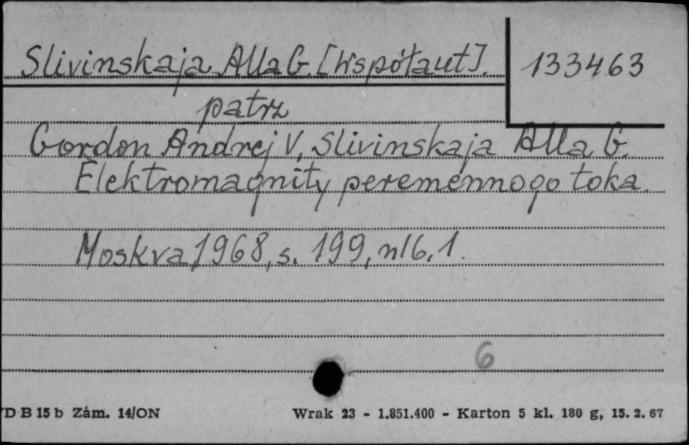 Slivinskaja Alla G. [Współaut]. 133463
patrz
Gordon Andrej V, Slivinskaja Alla G.
Elektromagnity peremennogo toka.
Moskva 1968, s. 199, nlb. 1.
6
D B 15 b Zám. 14/ON Wrak 23 - 1.851.400 - Karton 5 kl. 180 g, 15. 2. 67